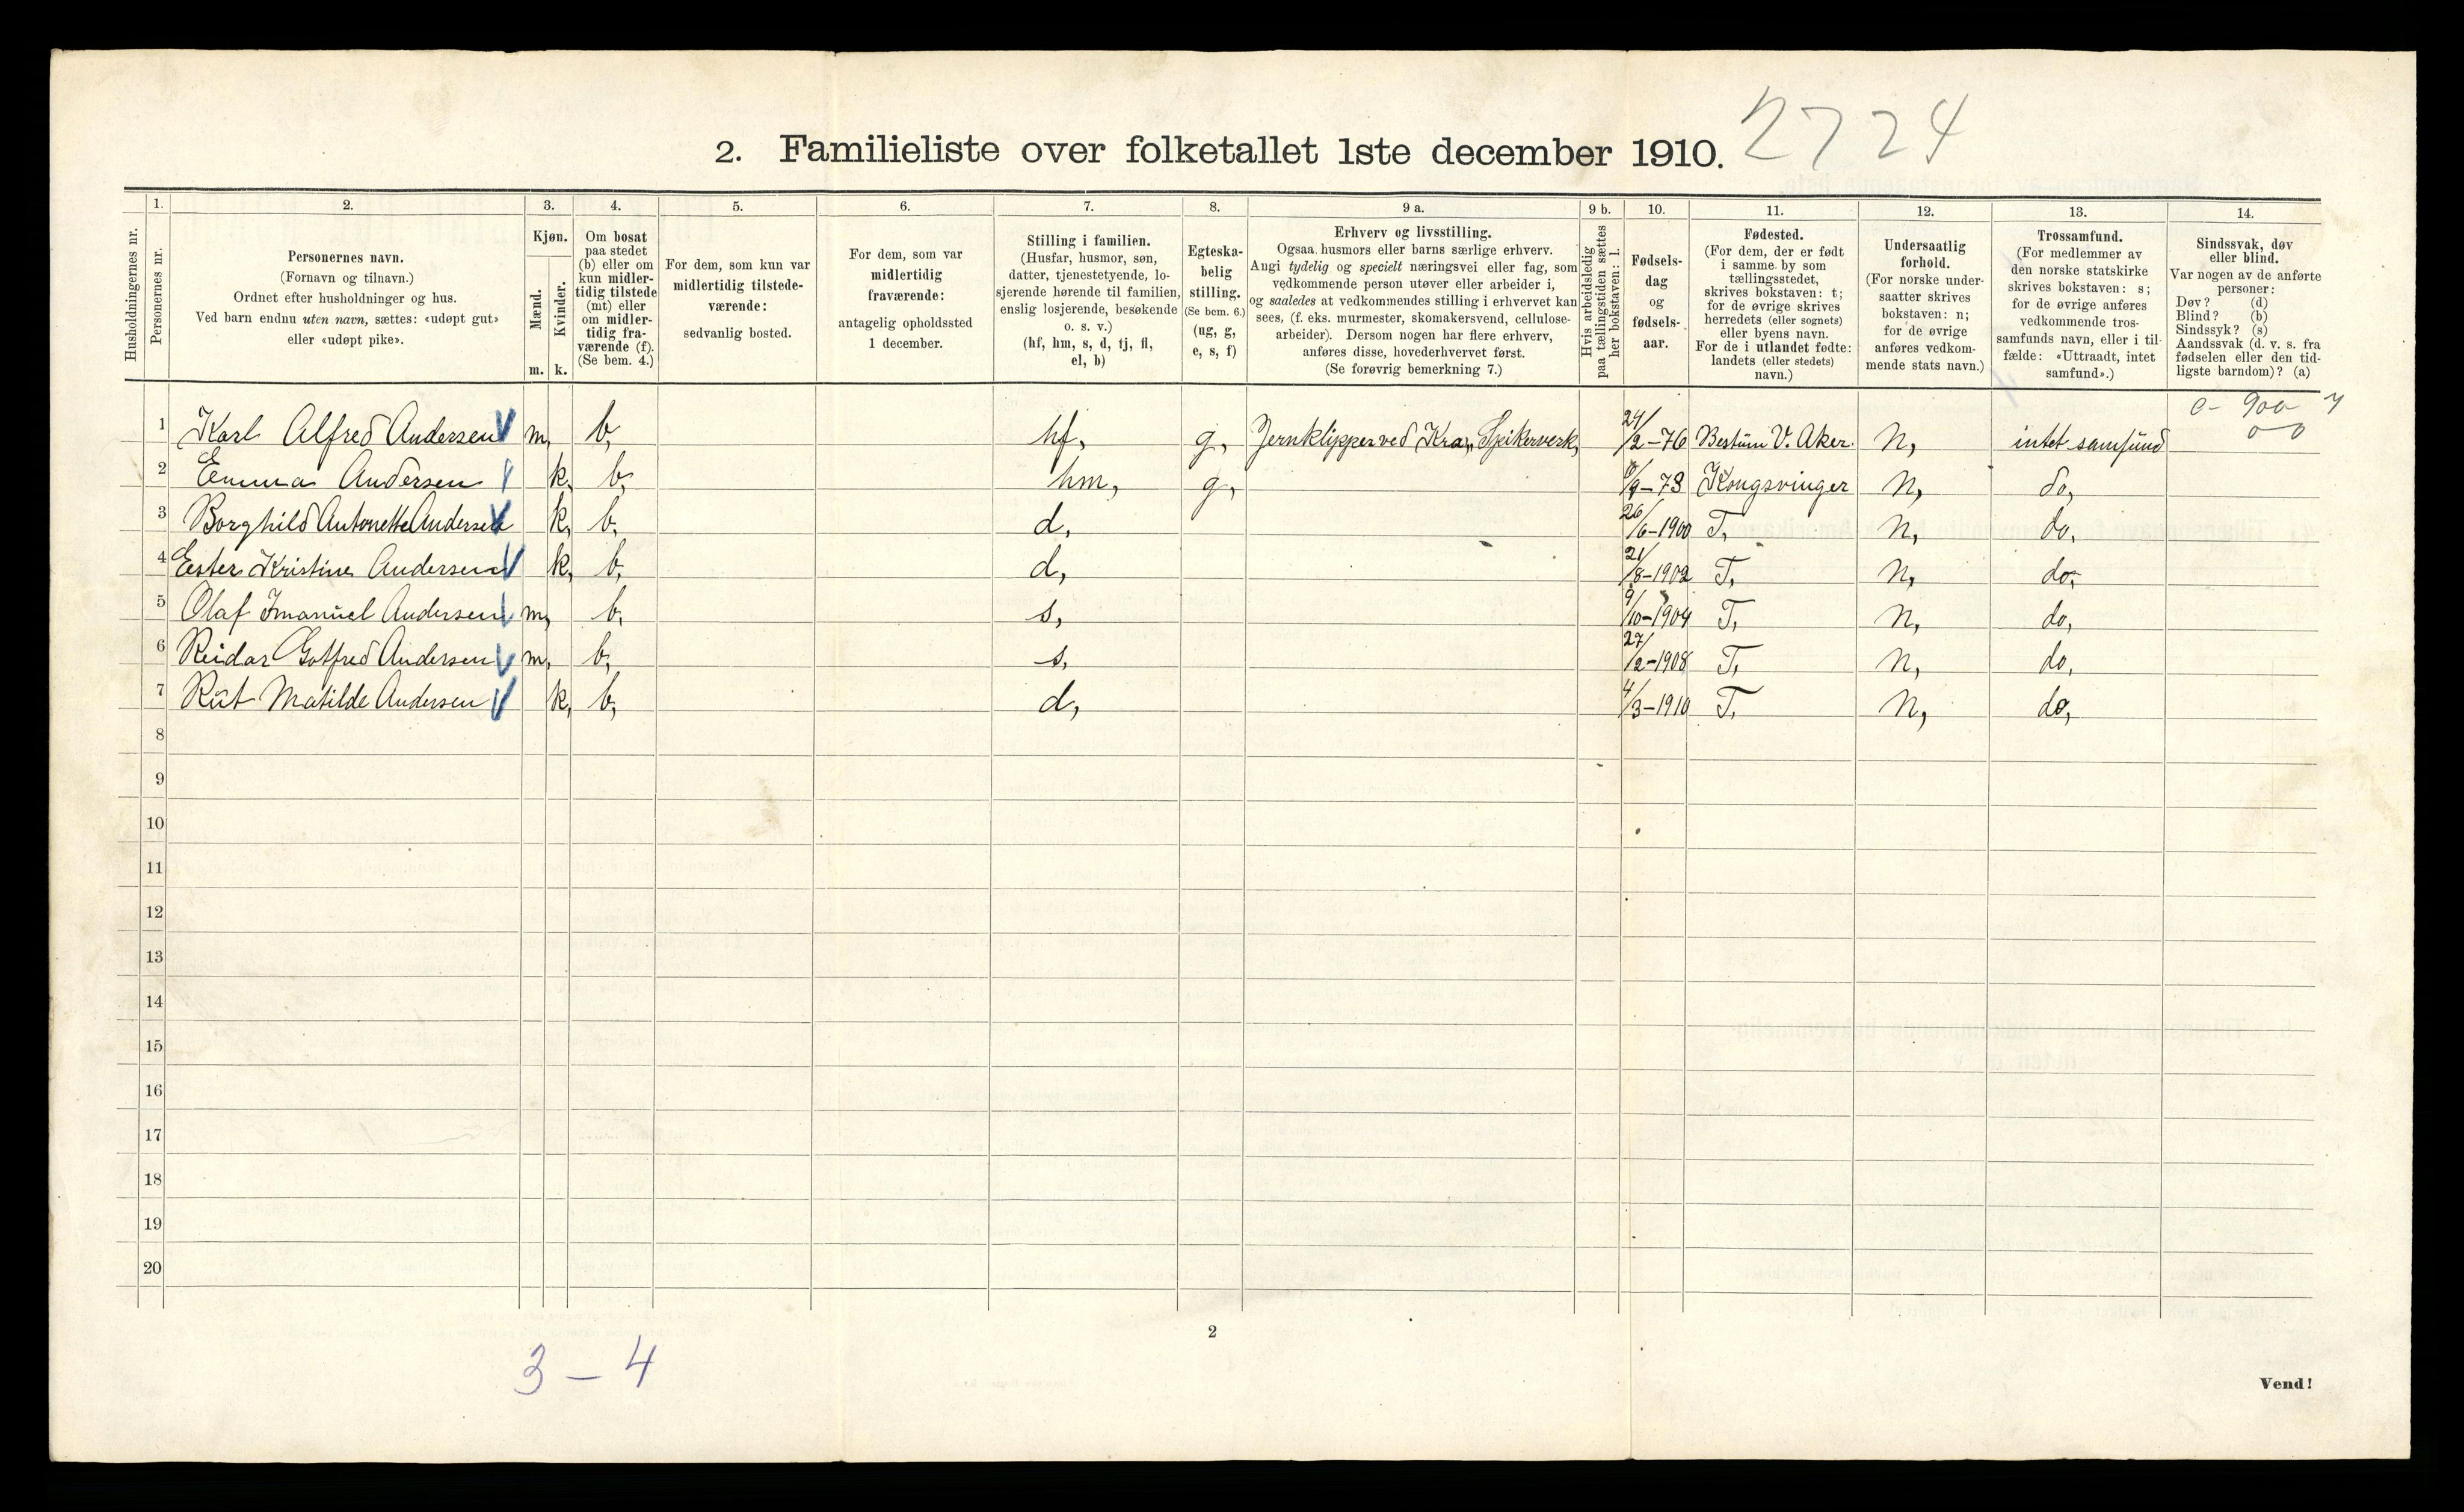 2. Familieliste over folketallet 1ste december 1910. 2724
Husholdningernes nr.
1.
Personernes nr.
2.
Personernes navn.
(Fornavn og tilnavn.)
Ordnet efter husholdninger og hus.
Ved barn endnu uten navn, sættes: «udøpt gut»
eller «udøpt pike».
3.
Kjøn.
Mænd.
Kvinder.
m. k.
4.
Om bosat
paa stedet
(b) eller om
kun midler-
tidig tilstede
(mt) eller
om midler-
tidig fra-
værende (f).
(Se bem. 4.)
5.
For dem, som kun var
midlertidig tilstede-
værende:
sedvanlig bosted.
6.
For dem, som var
midlertidig
fraværende:
antagelig opholdssted
1 december.
7.
Stilling i familien.
(Husfar, husmor, søn,
datter, tjenestetyende, lo-
sjerende hørende til familien,
enslig losjerende, besøkende
o. s. v.)
(hf, hm, s, d, tj, fl,
el, b)
8.
Egteska-
belig
stilling.
(Se bem. 6.)
(ug, g,
e, s, f)
9 a.
Erhverv og livsstilling.
Ogsaa husmors eller barns særlige erhverv.
Angi tydelig og specielt næringsvei eller fag, som
vedkommende person utøver eller arbeider i,
og saaledes at vedkommendes stilling i erhvervet kan
sees, (f. eks. murmester, skomakersvend, cellulose-
arbeider). Dersom nogen har flere erhverv,
anføres disse, hovederhvervet først.
(Se forøvrig bemerkning 7.)
9 b.
Hvis arbeidsledig
paa tællingstiden sættes
her bokstaven: l.
10.
Fødsels-
dag
og
fødsels-
aar.
11.
Fødested.
(For dem, der er født
i samme by som
tællingsstedet,
skrives bokstaven: t;
for de øvrige skrives
herredets (eller sognets)
eller byens navn.
For de i utlandet fødte:
landets (eller stedets)
navn.)
12.
Undersaatlig
forhold.
(For norske under-
saatter skrives
bokstaven: n;
for de øvrige
anføres vedkom-
mende stats navn.)
13.
Trossamfund.
(For medlemmer av
den norske statskirke
skrives bokstaven: s;
for de øvrige anføres
vedkommende tros-
samfunds navn, eller i til-
fælde: «Uttraadt, intet
samfund».)
14.
Sindssvak, døv
eller blind.
Var nogen av de anførte
personer:
Døv? (d)
Blind? (b)
Sindssyk? (s)
Aandssvak (d. v. s. fra
fødselen eller den tid-
ligste barndom)? (a)
1 Karl Alfred Andersen m, b, hf, g, Jernklipper ved Kra,, Spikerverk, 24/2-76 Bestum V. Aker. N, intet samfund
2 Emma Andersen k, b, hm, g, /9-73 Kongsvinger N, do,
3 Borghild Antonette Andersen k, b, d, 26/6-1900 T, N, do,
4 Ester Kristine Andersen k, b, d, 21/8-1902 T, N, do,
5 Olaf Imanuel Andersen m, b, s, 9/10-1904 T, N, do,
6 Reidar Gotfred Andersen m, b, s, 27/2-1908 T, N, do,
7 Rut Matilde Andersen k, b, d, 4/3-1910 T, N, do,
8
9
10
11
12
13
14
15
16
17
18
19
20
2
3-4
Vend!